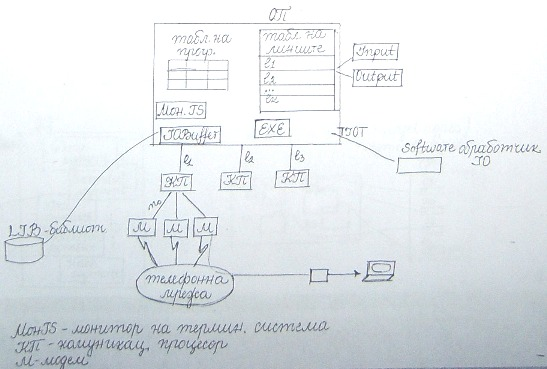 ОП
табл. на
процр.
табл на
линиите
l1
l2
...
Input
Output
Мон.TS
IOBuffer
EXE
l1
l2
l3
Software обработчик
IO
КП
КП
КП
М
М
М
LIB-библиот.
телефонна
мрежа
МонTS - монитор на термин. система
КП - комуникац. процесор
М-модем